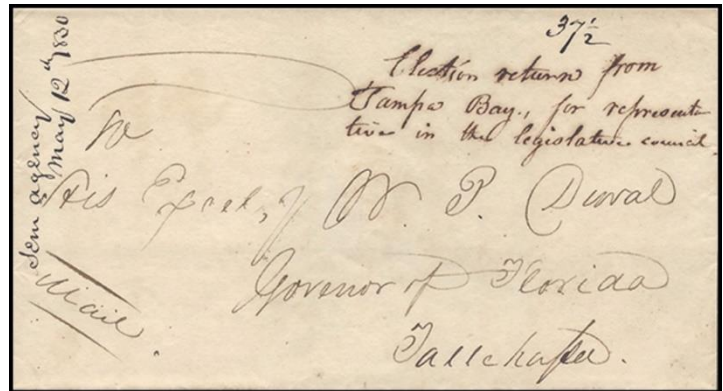 Sem agency
May 12th 1830
37½
Election return from
Tampa Bay, for representa
tive in the legislative council
To
His Excel,y W. P. Duval
Govenor of Florida
Tallehassee.
Mail